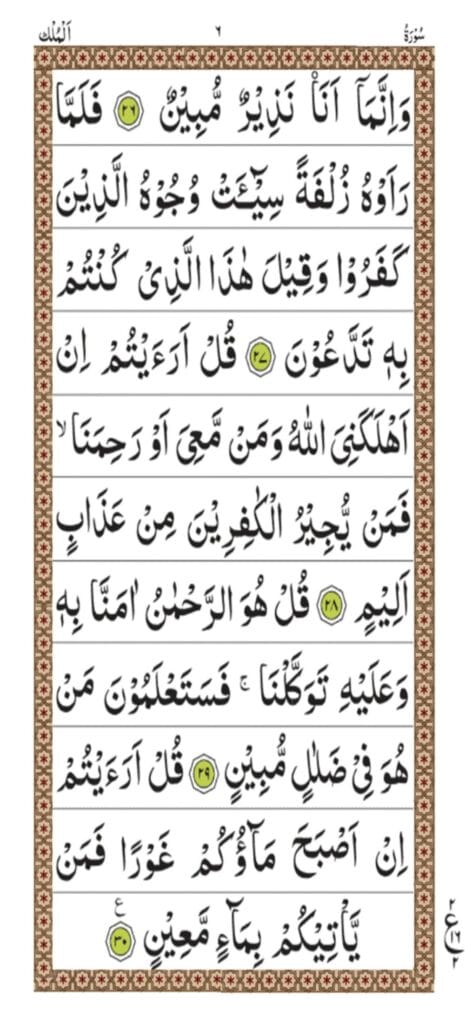 سُوْرَةُ ٦ اَلْمُلْك
وَاِنَّمَاۤ اَنَا۠ نَذِيْرٌ مُّبِيْنٌ ۝٢٦ فَلَمَّا
رَاَوْهُ زُلْفَةً سِيْٓـَٔتْ وُجُوْهُ الَّذِيْنَ
كَفَرُوْا وَقِيْلَ هٰذَا الَّذِيْ كُنْتُمْ
بِهٖ تَدَّعُوْنَ ۝٢٧ قُلْ اَرَءَيْتُمْ اِنْ
اَهْلَكَنِيَ اللّٰهُ وَمَنْ مَّعِيَ اَوْ رَحِمَنَا ۙ
فَمَنْ يُّجِيْرُ الْكٰفِرِيْنَ مِنْ عَذَابٍ
اَلِيْمٍ ۝٢٨ قُلْ هُوَ الرَّحْمٰنُ اٰمَنَّا بِهٖ
وَعَلَيْهِ تَوَكَّلْنَا ۚ فَسَتَعْلَمُوْنَ مَنْ
هُوَ فِيْ ضَلٰلٍ مُّبِيْنٍ ۝٢٩ قُلْ اَرَءَيْتُمْ
اِنْ اَصْبَحَ مَآؤُكُمْ غَوْرًا فَمَنْ
يَّاْتِيْكُمْ بِمَآءٍ مَّعِيْنٍ ۝٣٠ ع
٢
ع
١٦
٢